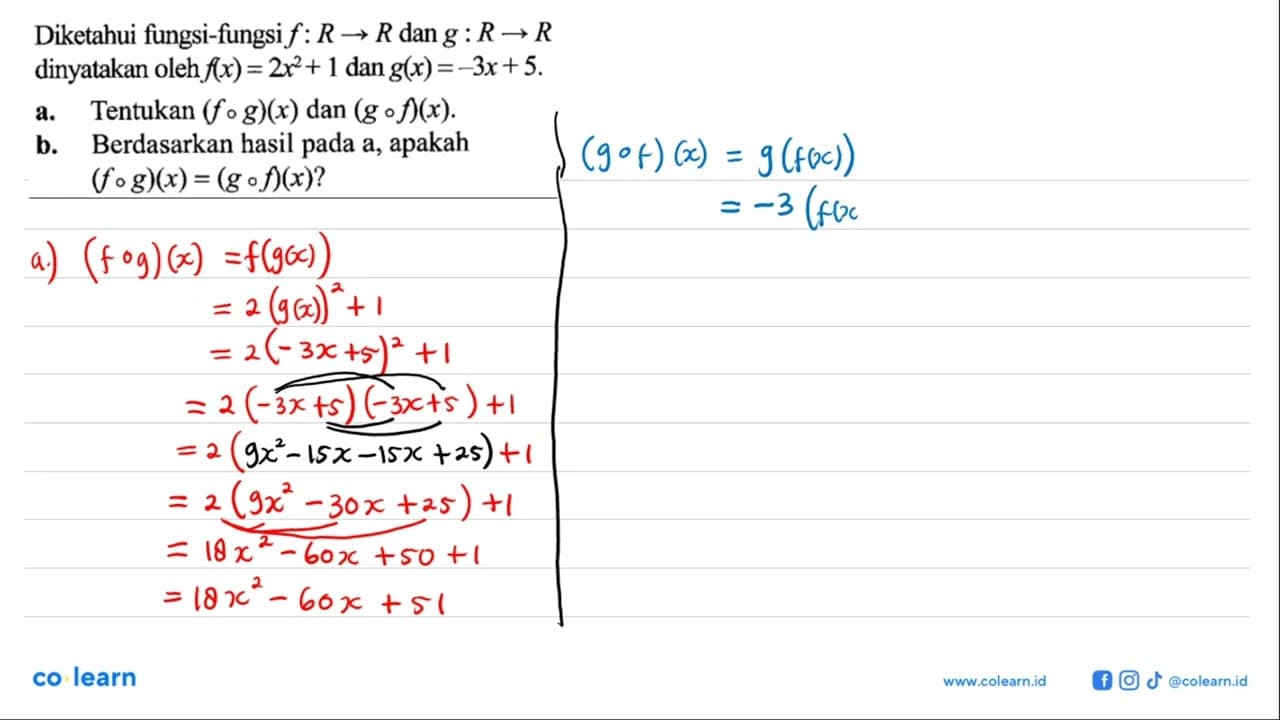 Diketahui fungsi-fungsi f : R → R dan g : R → R
dinyatakan oleh f(x) = 2x² + 1 dan g(x) = –3x + 5.
a. Tentukan (f ∘ g)(x) dan (g ∘ f)(x).
b. Berdasarkan hasil pada a, apakah
(f ∘ g)(x) = (g ∘ f)(x)?
a.) (f ∘ g)(x) = f(g(x))
= 2(g(x))² + 1
= 2(-3x+5)² + 1
= 2(-3x+5)(-3x+5) + 1
= 2(9x² - 15x - 15x + 25) + 1
= 2(9x² - 30x + 25) + 1
= 18x² - 60x + 50 + 1
= 18x² - 60x + 51
(g ∘ f)(x) = g(f(x))
= -3(f(x
co learn
www.colearn.id
@colearn.id